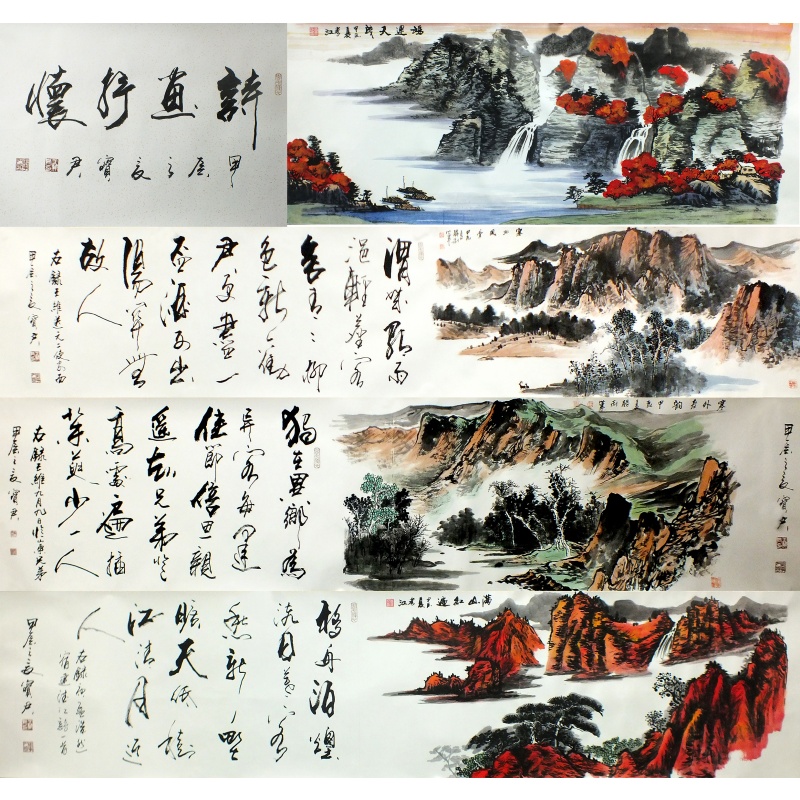 詩畫抒懷
甲辰之夏寶君
渭城朝雨
浥輕塵客
舍青々柳
色新勸
君更盡一
杯酒西出
陽關無
故人
右錄王維送元二使安西
甲辰之夏寶君
獨在異鄉為
異客每逢
佳節倍思親
遙知兄弟登
高處遍插
茱萸少一人
右錄王維九月九日憶山東兄弟
甲辰之夏寶君
甲辰之夏寶君
滿山紅遍
移舟泊煙
渚日暮客
愁新野
曠天低樹
江清月近
人
右錄孟浩然
宿建德江詩一首
甲辰之夏寶君